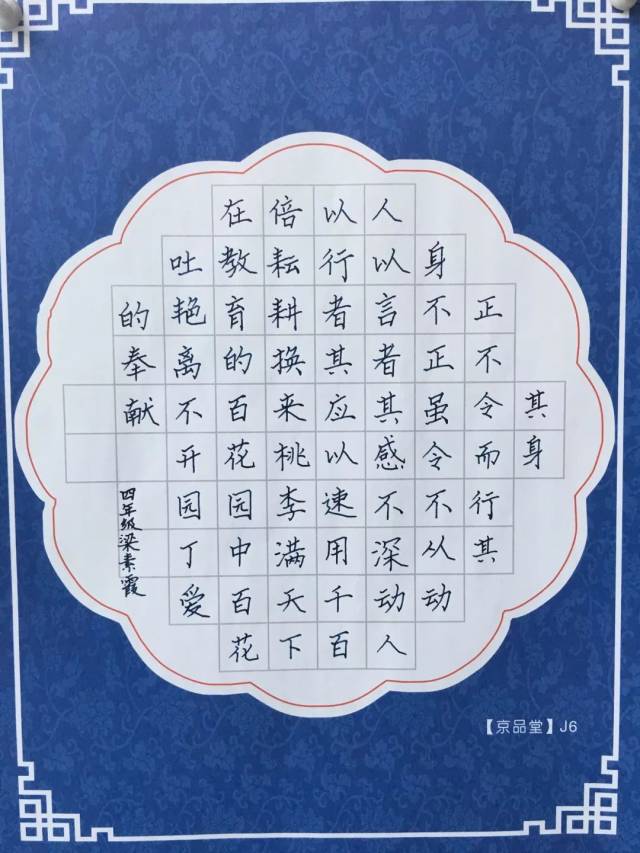 其身
正不令而行其
身不正虽令不从动
人以言者其感不深动人
以行者其应以速用千百
倍耘耕换来桃李满天下
在教育的百花园中百花
吐艳离不开园丁爱
的奉献
四年级梁素霞
【京品堂】J6